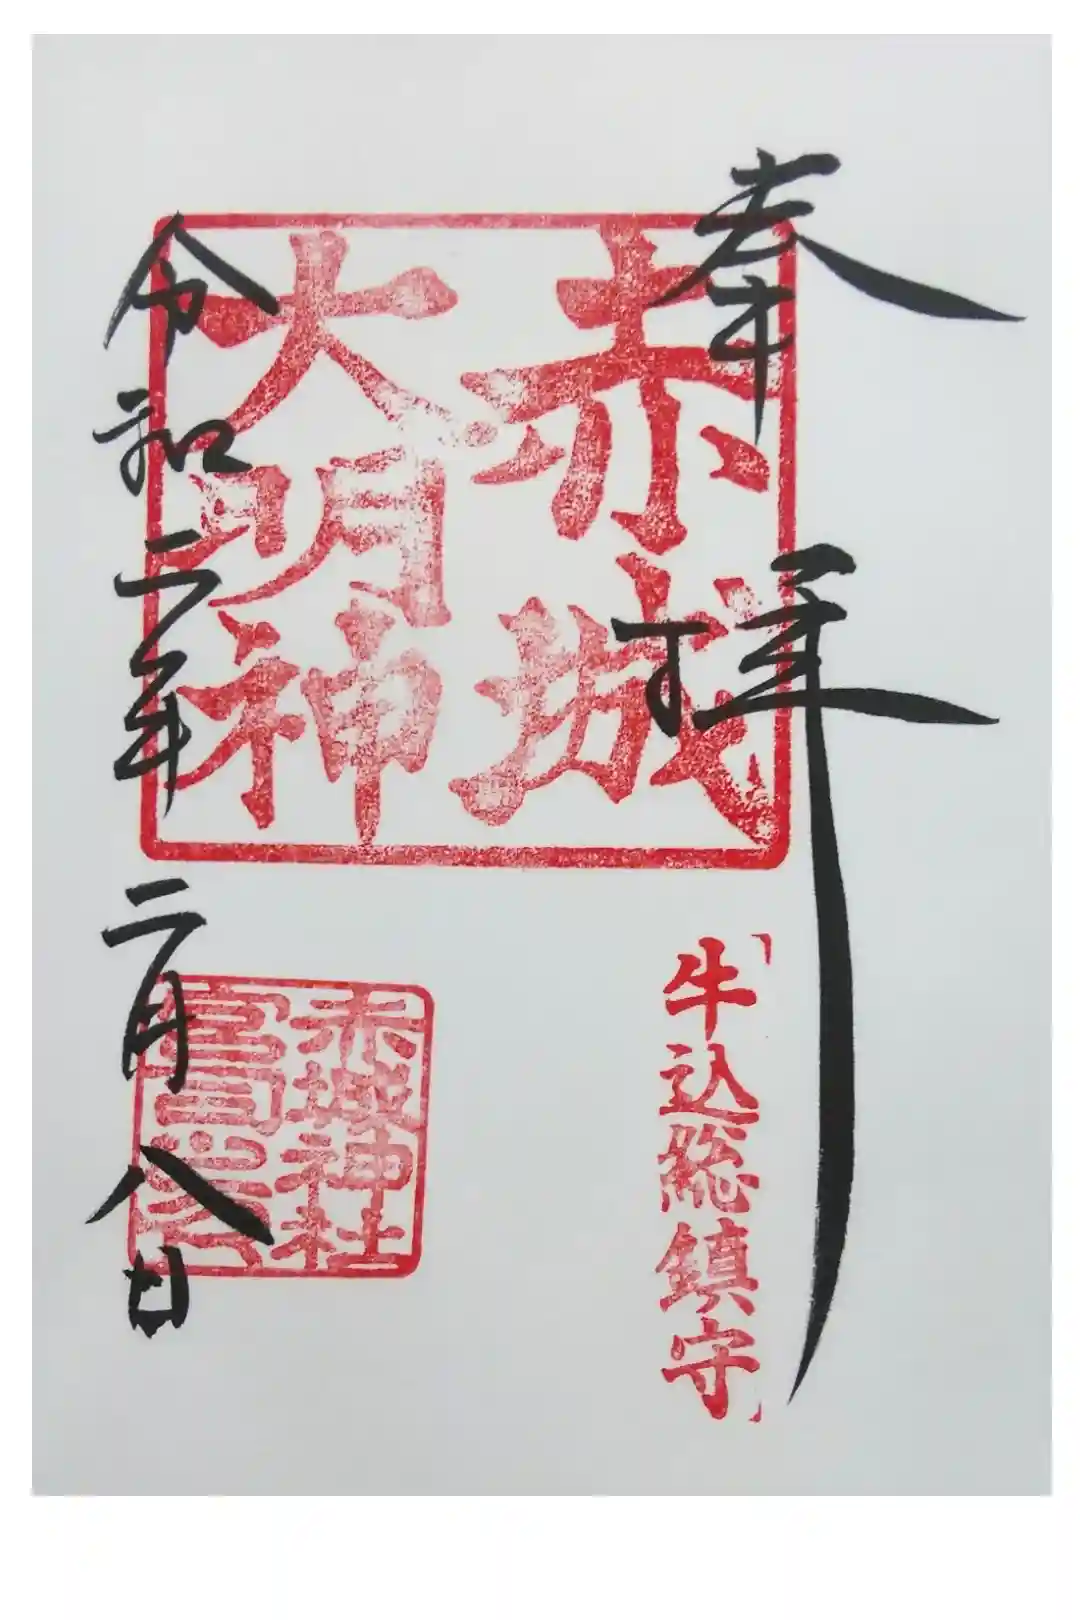 奉拝
赤城
大明神
「牛込総鎮守」
赤城神社
宮司
令和二年二月八日